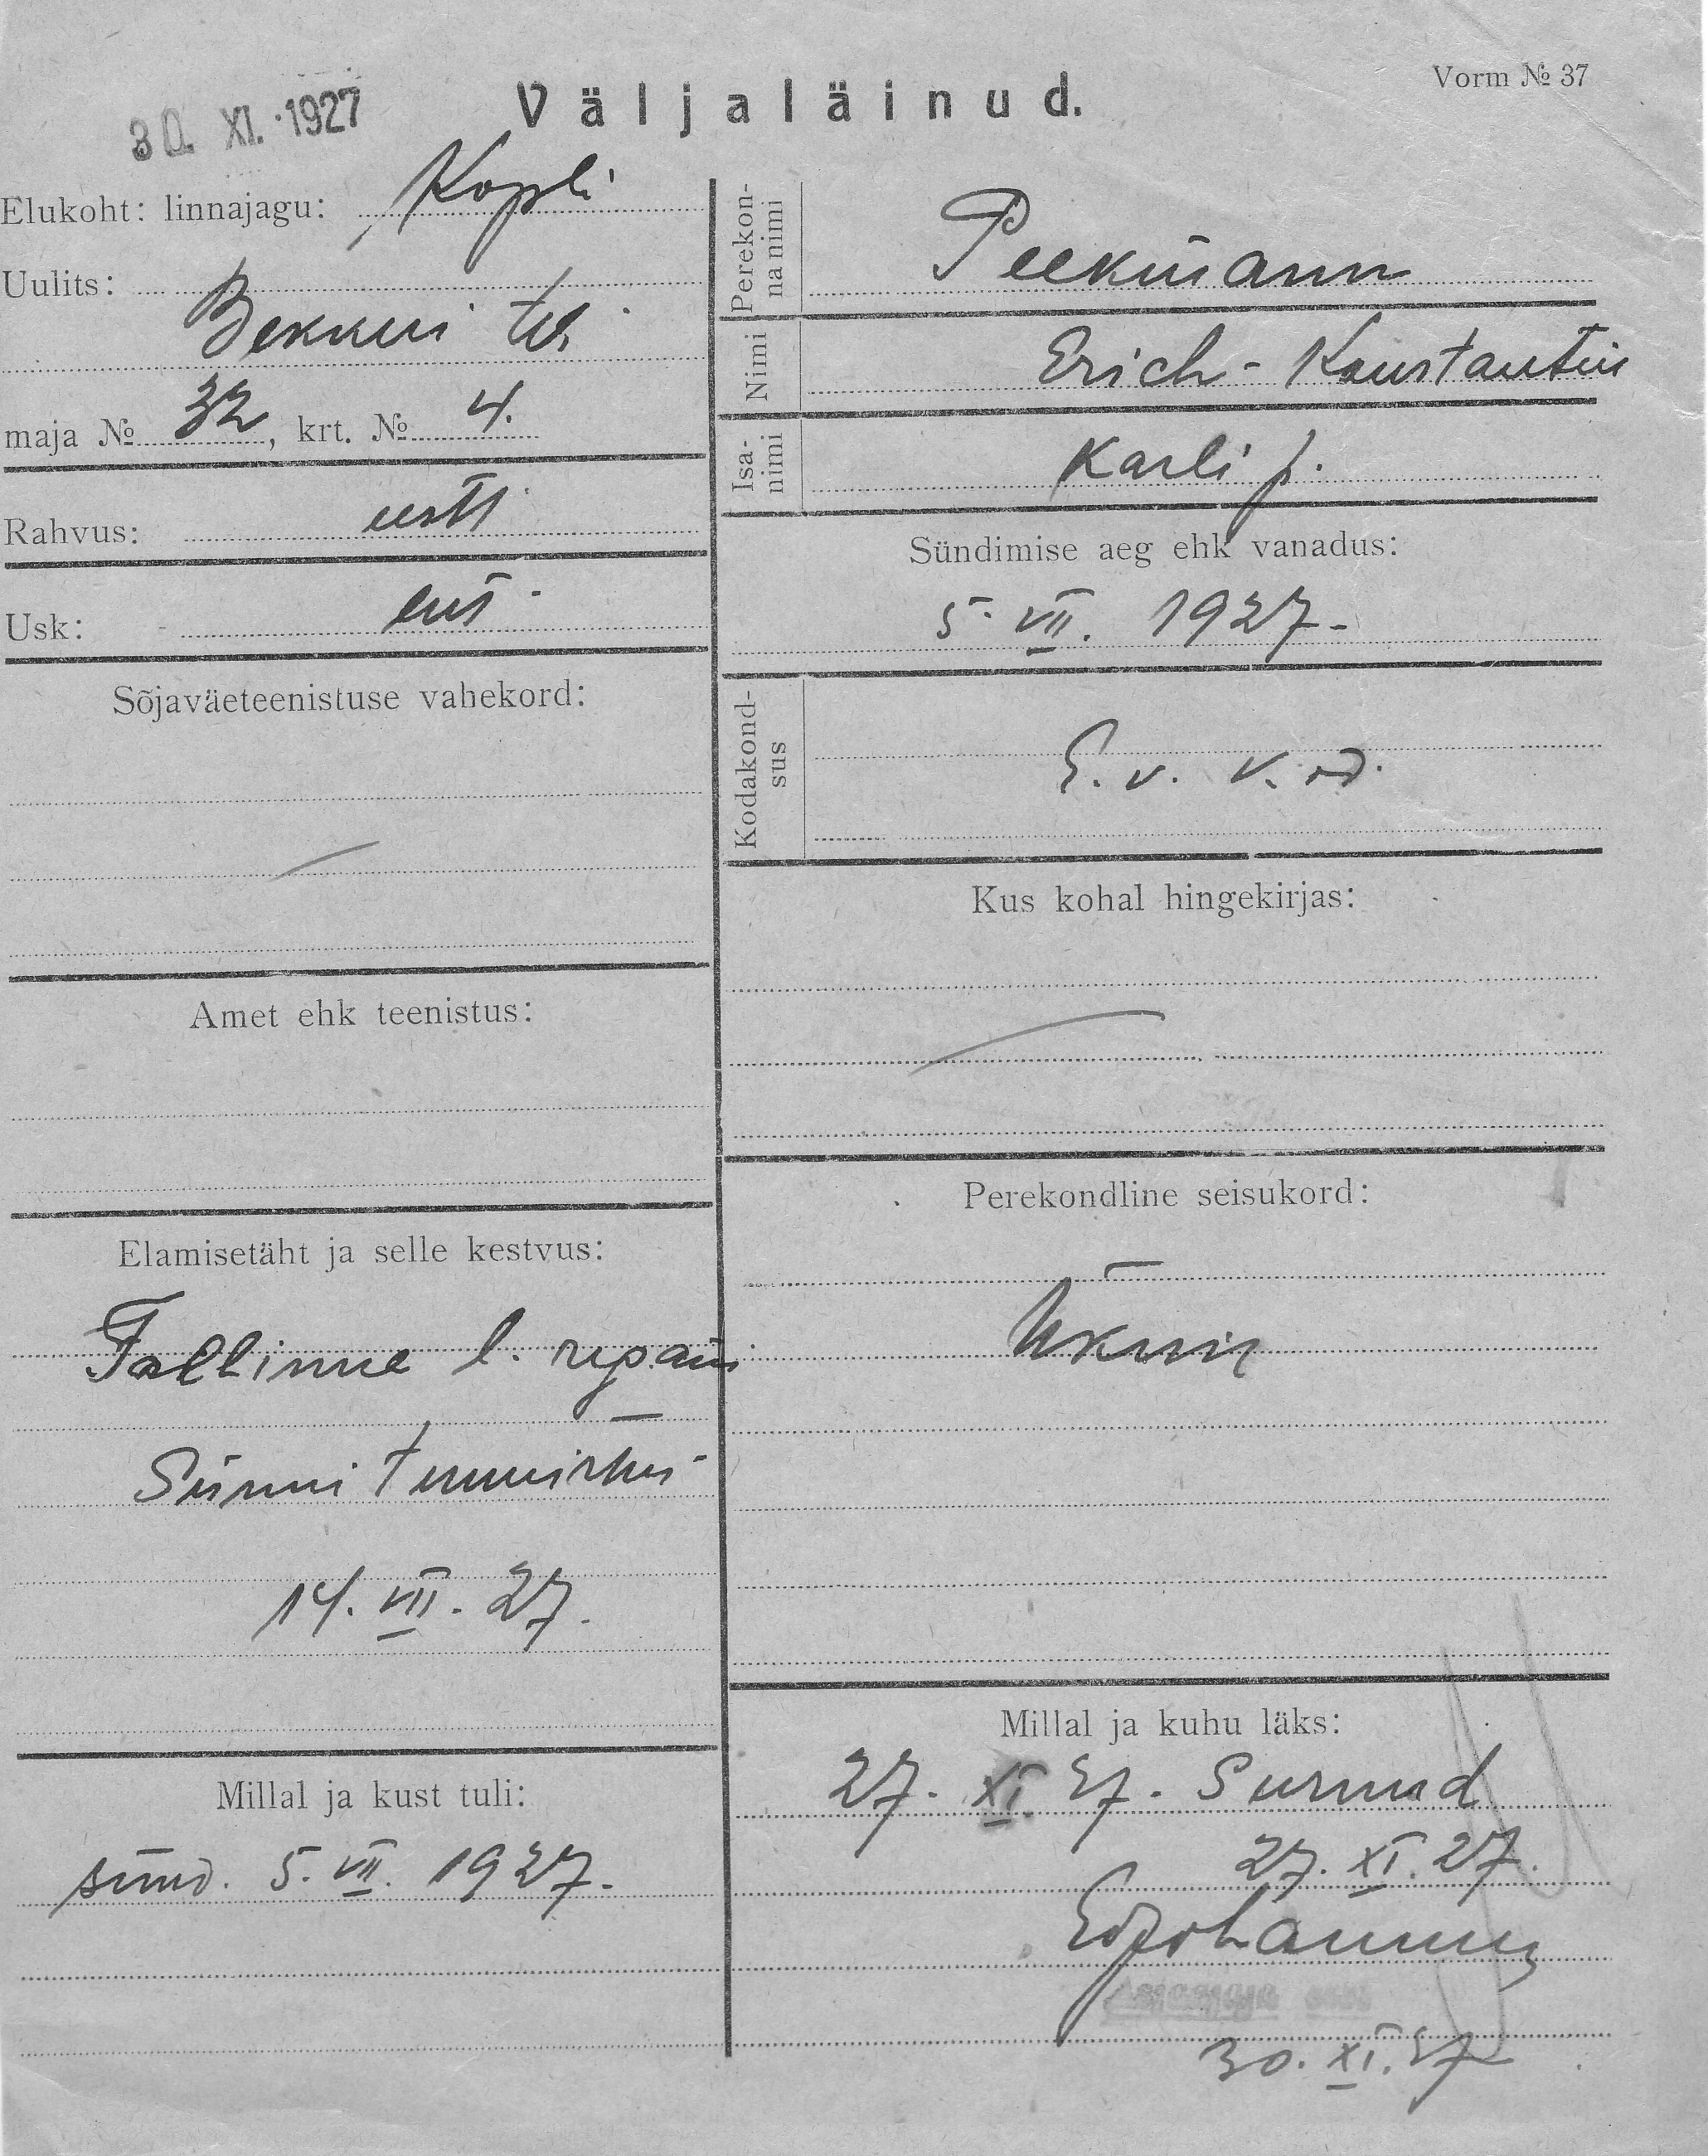 Vorm № 37
Väljaläinud.
30. XI. 1927
Elukoht: linnajagu: Kopli
Uulits:
Bekkeri teh.
maja № 32, krt. № 4.
Rahvus: eesti
Usk: lut
Sõjaväeteenistuse vahekord:
Amet ehk teenistus:
Elamisetäht ja selle kestvus:
Tallinna l.
Sünni tunnistus
14. VII. 27.
Millal ja kust tuli:
sünd. 5. VII. 1927.
Perekonna nimi
Peekmann
Nimi
Erich - Konstantin
Isa-nimi
Karli p.
Sündimise aeg ehk vanadus:
5. VII. 1927.
Kodakond-sus
E. v. k.
Kus kohal hingekirjas:
Perekondline seisukord:
Millal ja kuhu läks:
27. XI 27. Surnud
27. XI. 27.
30. XI. 27